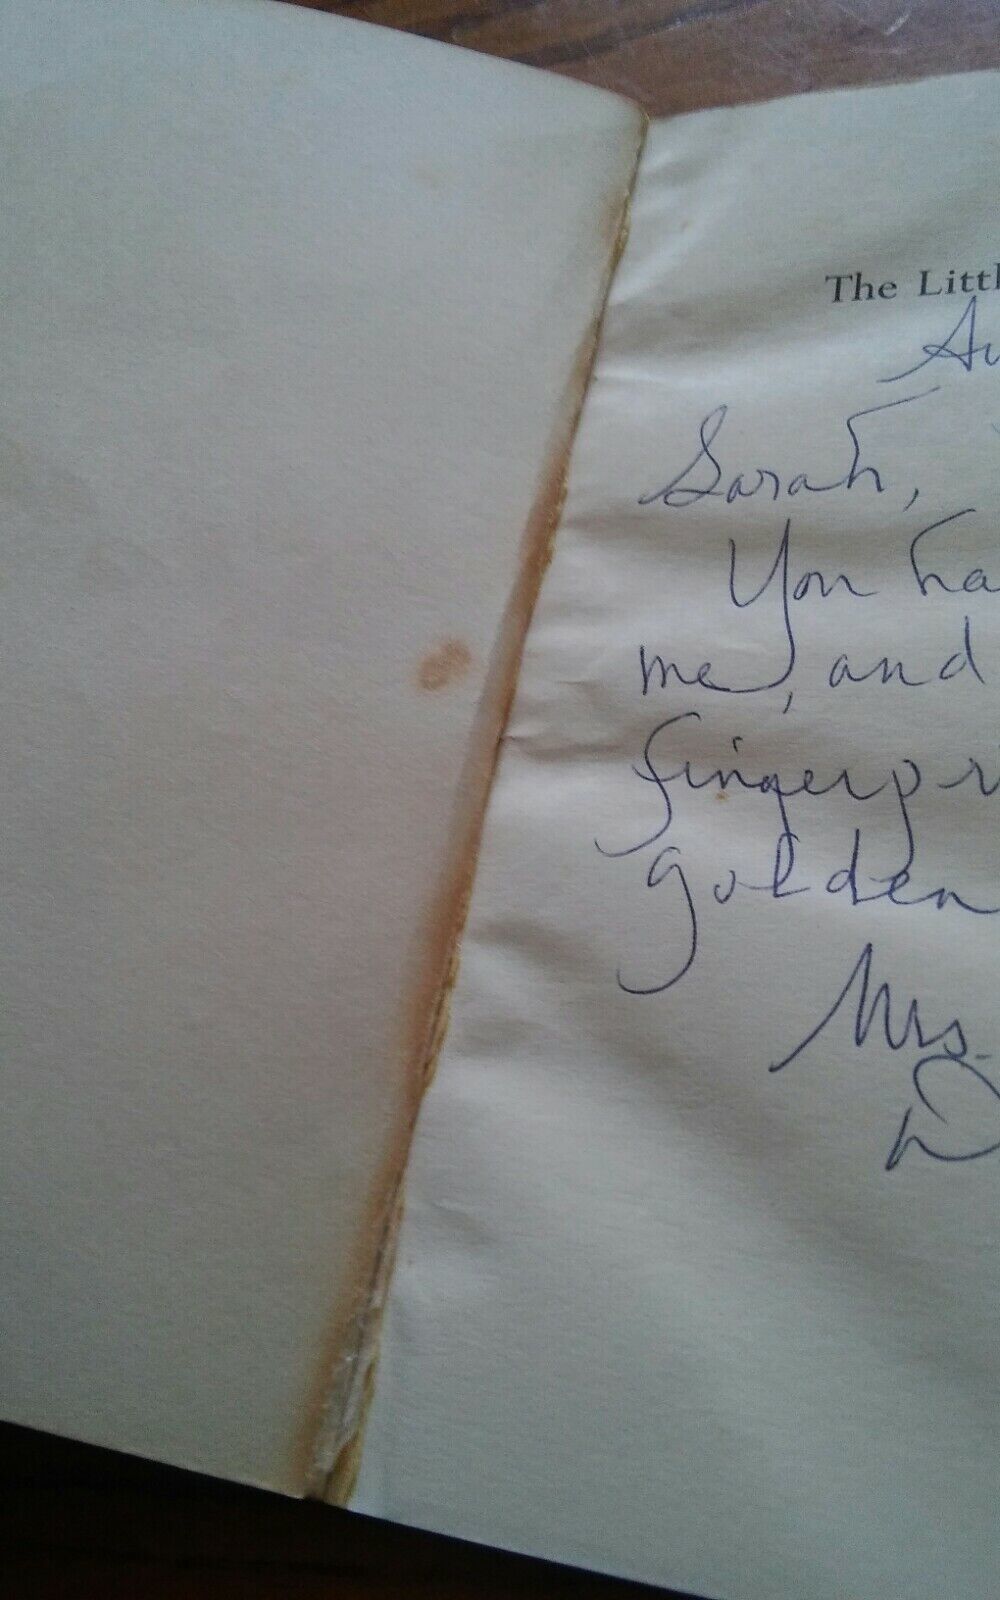 The Littl
Au
Sarah,
You ha
me, and
fingerpr
golden
Mrs.
D